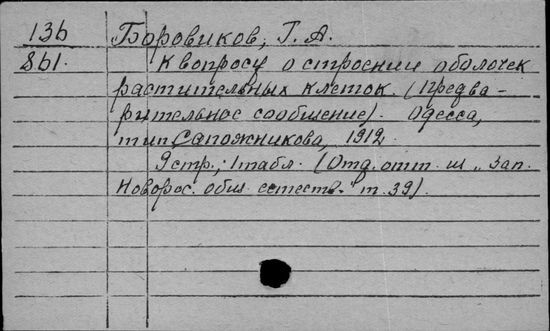 13b Боровиков, Г. А.
861. К вопросу о строении оболочек
растительных клеток. (Предва-
рительное сообщение). Одесса,
тип. Сапожникова, 1912.
9 стр.; 1 табл. (Отд. отт. из „Зап.
Новорос. общ. естеств." т. 39).